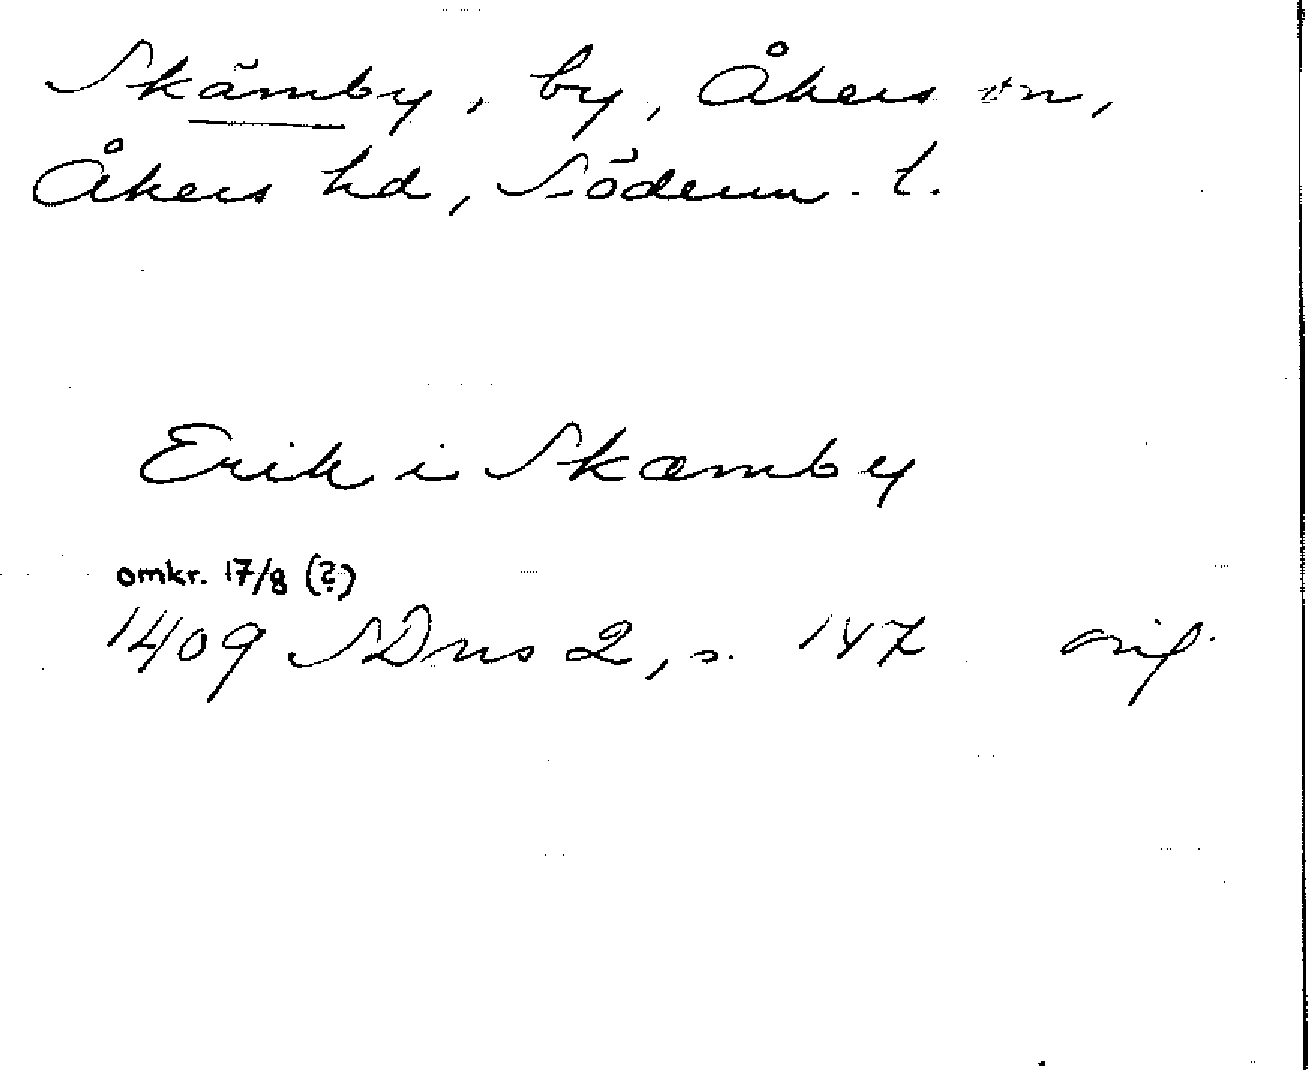 Skämby, by, Åkers sn,
Åkers hd, Söderm. l.
Erik i Skæmby
omkr. 17/8 (?)
1409 SDns 2, s. 147 orig.